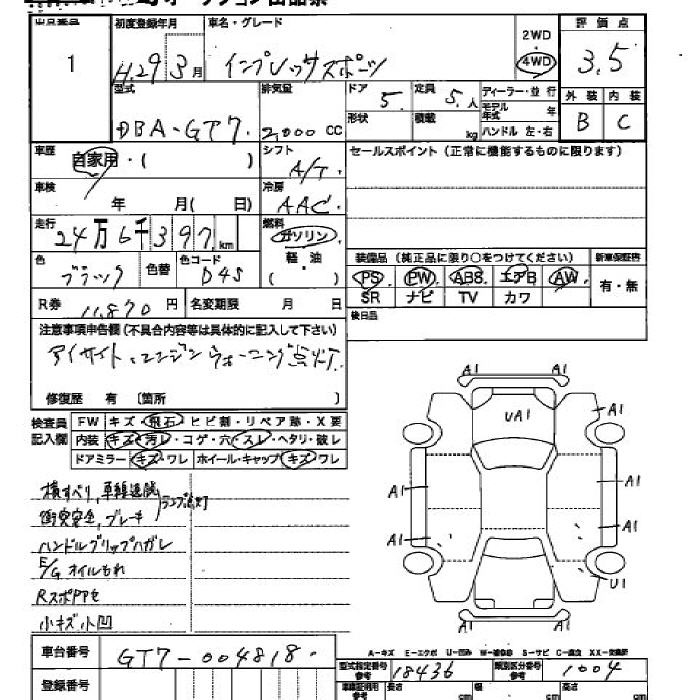 出品番号 初度登録年月 車名・グレード 2WD 評価点
1 H.29 3月 インプレッサスポーツ 4WD 3.5
型式 排気量 ドア 定員 ディーラー・並行 外装 内装
DBA-GT7. 2,000 CC 5. 5.人 モデル年式 年 B C
形状 積載 kg ハンドル 左・右
車歴 自家用・( ) シフト A/T. セールスポイント(正常に機能するものに限ります)
車検 年 月( 日) 冷房 AAC.
走行 24万6千397km 燃料 ガソリン.
色 ブラック 色替 色コード D4S 軽油 ( ) 装備品(純正品に限り○をつけてください) 新車保証書
PS PW ABS エアB AW 有・無
R券 11,870円 名変期限 月 日 SR ナビ TV カワ
注意事項申告欄(不具合内容等は具体的に記入して下さい) 後日品
アイサイト、エンジンウォーニング点灯.
修復歴 有 〔箇所 〕
検査員記入欄 FW キズ・飛石・ヒビ割・リペア跡・X要
内装 キズ・汚レ・コゲ・穴・スレ・ヘタリ・破レ
ドアミラー キズ・ワレ ホイール・キャップ キズ・ワレ
横すべり,車線逸脱
衝突安全,ブレーキ ランプ点灯
ハンドルグリップハガレ
E/Gオイルもれ
RスポPPを
小キズ小凹
A1 A1
UA1
A1 A1
A1 A1
U1
A1 A1
A-キズ E-エクボ U-凹み W-補修跡 S-サビ C-腐食 XX-交換済
車台番号 GT7-004818. 型式指定番号 参考 18436 類別区分番号 参考 1004
登録番号 車庫証明用 参考 長さ cm 幅 cm 高さ cm